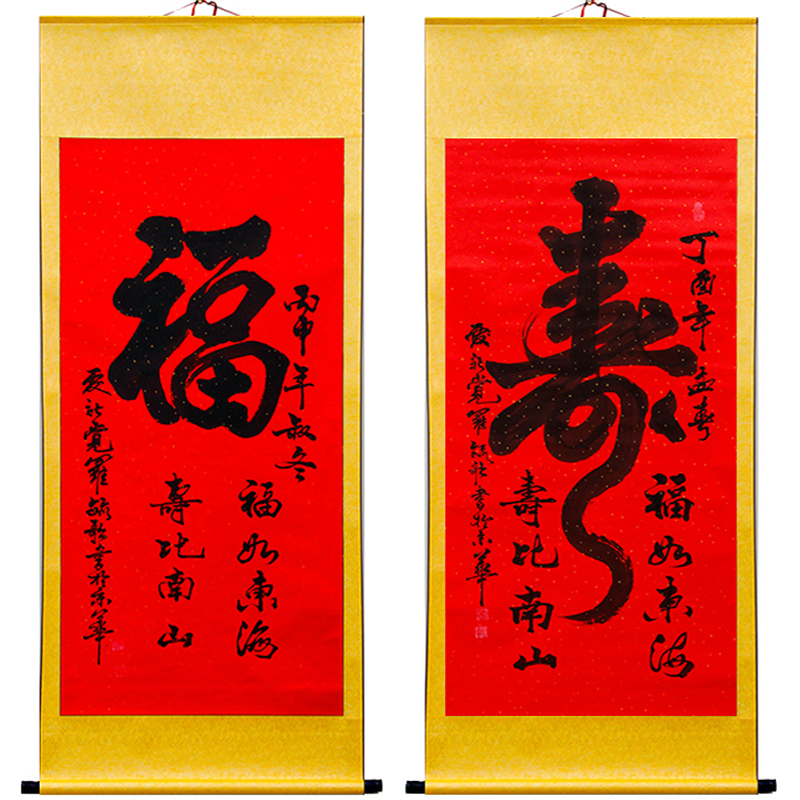 福
丙申年叔冬
福如東海
壽比南山
愛新覺羅毓書於京華
寿
丁酉年孟春
福如東海
壽比南山
愛新覺羅毓書於京華